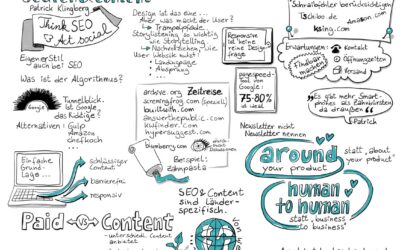 Patrick Klingberg
Think SEO
Act social
Eigener Stil
auch bei SEO
Was ist der Algorithmus?
Tunnelblick.
Ist Google
das Richtige?
Google
Alternativen:
amazon
chefkoch
Einfache
Grund-
lage...
schlüssiger
Content
barrierefrei
responsiv
Paid vs Content
Design ist das eine...
Aber was macht der User?
Trampelpfade
Storylistening so wichtig
wie Storytelling
Nachvollziehen, wie
User Website nutzt
Landungpage
Absprung
archive.org Zeitreise
screamingfrog.com
builtwith.com
answerthepublic.com
kwfinder.com
hypersuggest.com
bloomberry.com
Beispiel:
Zahnpasta
SEO & Content
sind länder-
spezifisch.
Responsive
ist keine
reine Design-
frage
pagespeed-
Tool von
Google:
75-80%
ist ideal
"Schreibfehler berücksichtigen"
Tschibo.de
Amazon.com
Erwartungen:
Kontakt
Öffnungszeiten
Versand
Findbar
machen
"Es gibt mehr Smart-
phones als Zahnbürsten
da draußen"
Patrick
Newsletter nicht
Newsletter nennen
around
your product
statt "about
your product"
human
to human
statt "business
to business"